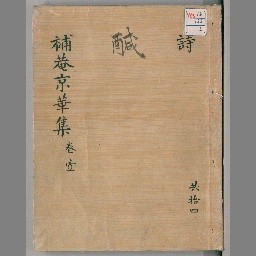 詩
鹹
補菴京華集 巻壹
共拾四